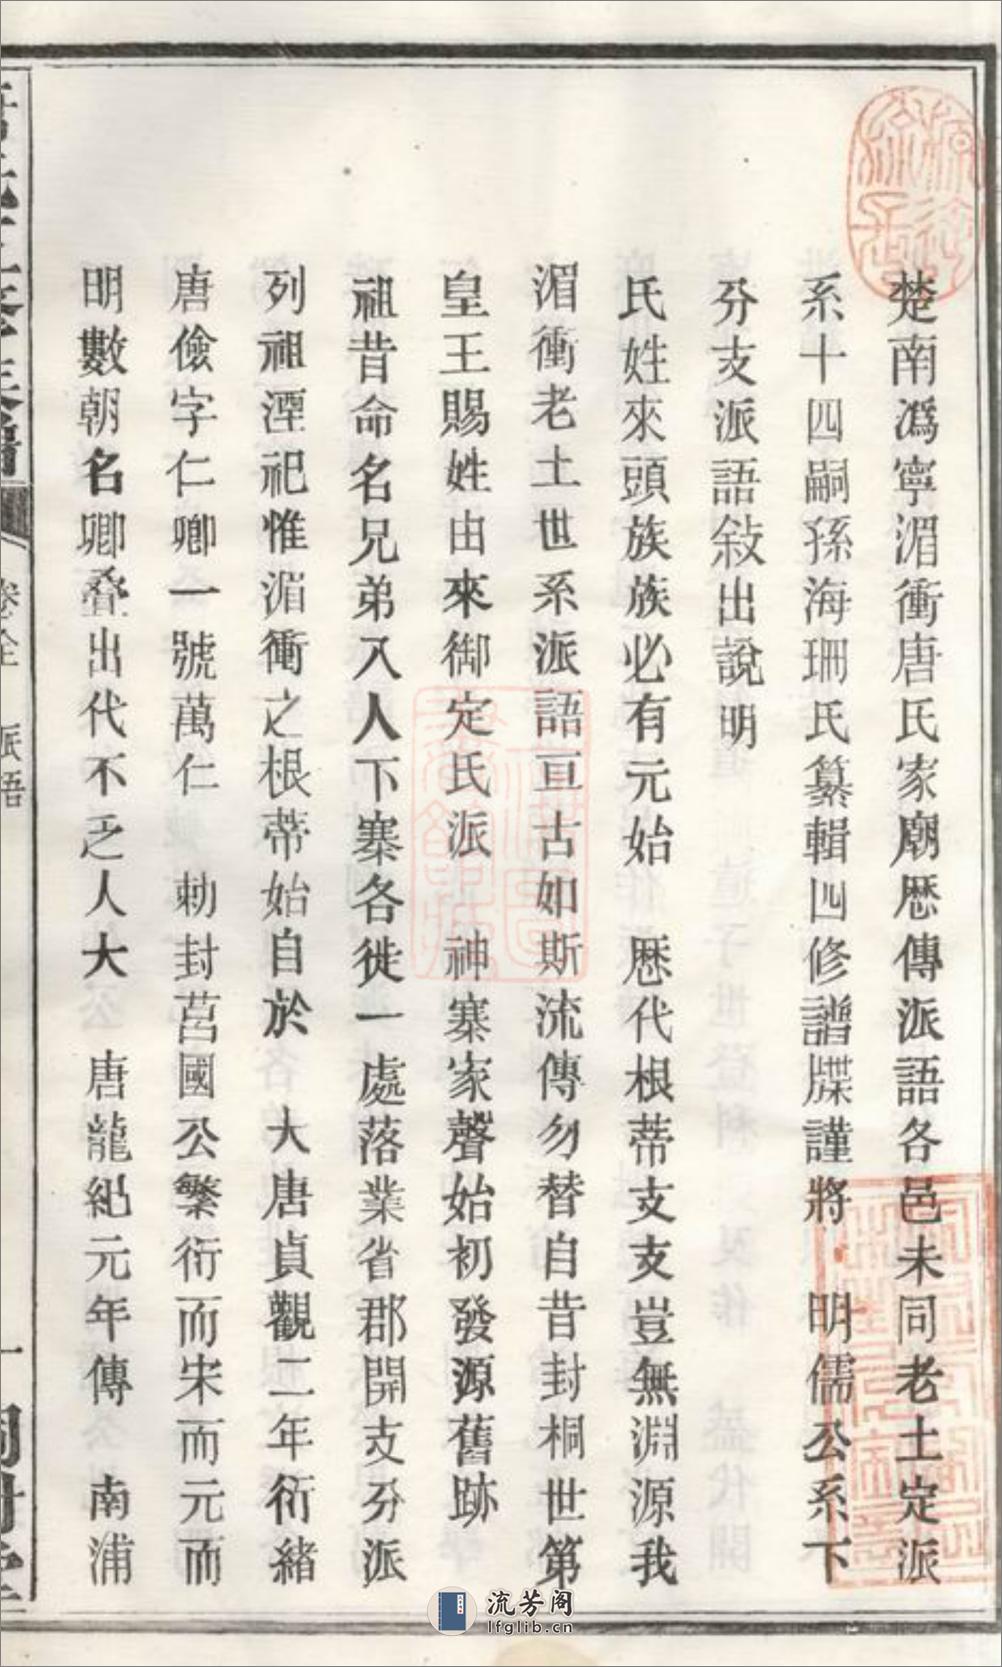 楚南爲寧湄衝唐氏家廟歷傳派語各邑未同老土定派
系十四嗣孫海珊氏纂輯四修譜牒謹將　明儒公系下
分支派語敍出說明
氏姓來頭族族必有元始　歷代根蒂支支豈無淵源我
湄衝老土世系派語亘古如斯流傳勿替自昔封桐世第
皇王賜姓由來御定氏派　神寨家聲始初發源舊跡
祖昔命名兄弟入人下寨各徙一處落業省郡開支分派
列祖湮祀惟湄衝之根蒂始自於　大唐貞觀二年衍緒
唐儉字仁卿一號萬仁　勅封莒國公繁衍而宋而元而
明數朝名卿叠出代不乏人大　唐龍紀元年傳　南浦
卷全　派語
一
流芳阁
lfglib.cn